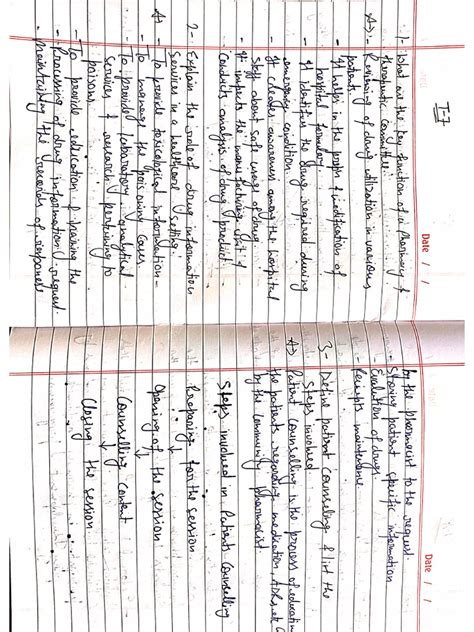 I-7
Date / /
1- What are the key function of a Pharmacy &
therapeutic Committee.
A→ - Reviewing of drug utilization in various
patients
- It helps in the prepn & modification of
hospital formulary
- It identifies the drug required during
emergency condition.
- It creates awareness among the hospital
staff about safe usage of drug.
- It inspects the manufacturing unit &
conducts analysis of drug product.
2- Explain the role of drug information
services in a healthcare setting.
A - To provide toxicological information -
- To manage the poisoning cases
- To provide laboratory analytical
services & research pertaining to
poisons.
- To provide education & training the
- Processing of drug information request.
- maintaining the records of responses
Date / /
by the pharmacist to the request.
- Storing patient specific information
- Evaluation of drug
- Receipts maintenance
3- Define patient counseling & list the
steps involved.
A→ Patient Counselling is the process of educating
the patients regarding medication, ADRs, etc
by the Community pharmacist.
Steps involved in Patients Counselling
Preparing for the session
↓
Opening of the session
↓
Counselling content
↓
Closing the session.